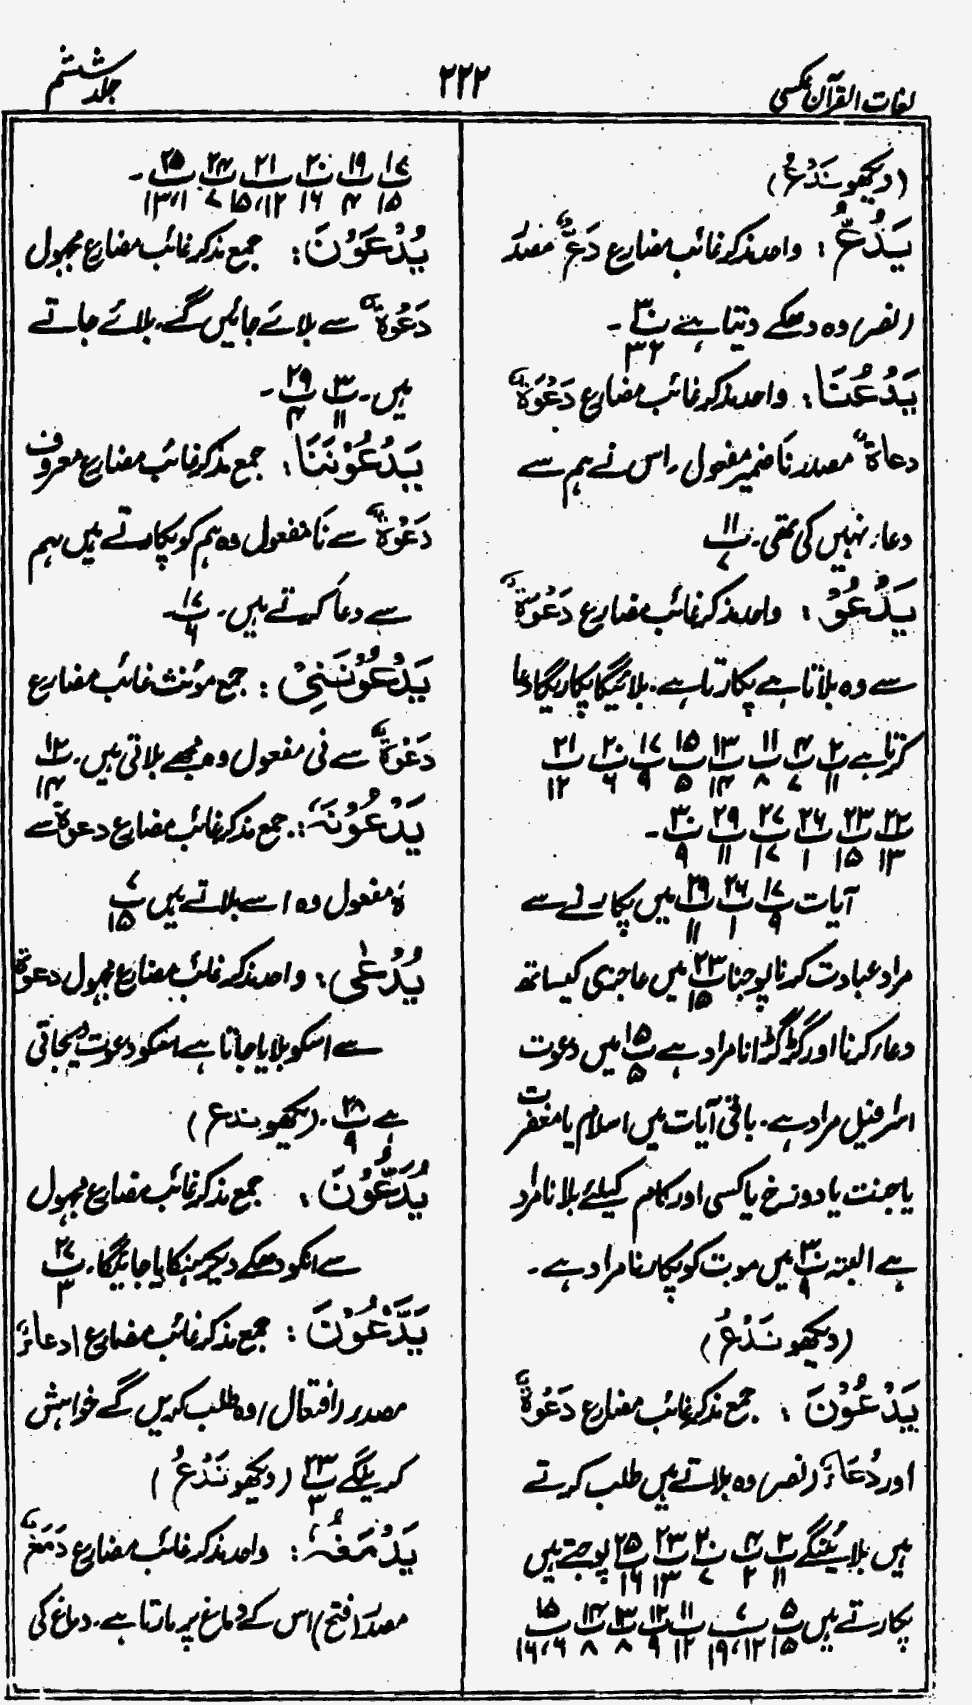 لغات القرآن عکسی
۲۲۲
جلد ششم
(دیکھو نَدْعُ)
یَدُعُّ: واحد مذکر غائب مضارع دَعٌّ مصدر
(نصر) وہ دھکے دیتا ہے پ۳۰/۳۲۔
یَدْعُنَا: واحد مذکر غائب مضارع دَعْوَۃٌ
دعاۃٌ مصدر نَا ضمیر مفعول۔ اس نے ہم سے
دعاء نہیں کی تھی۔ پ۱۱/۷
یَدْعُوْ: واحد مذکر غائب مضارع دَعْوَۃٌ
سے وہ بلاتا ہے پکارتا ہے۔ بلائیگا پکاریگا دعا
کرتا ہے پ۲/۱۱ پ۴/۷ پ۱۱/۸ پ۱۳/۱۴ پ۱۵/۵ پ۱۷/۹ پ۲۰/۶ پ۲۱/۱۲
پ۲۲/۱۳ پ۲۳/۱۵ پ۲۶/۱ پ۲۷/۱۷ پ۲۹/۱۱ پ۳۰/۹۔
آیات پ۱۷/۹ پ۲۶/۱ پ۲۹/۱۱ میں پکارنے سے
مراد عبادت کرنا پوجنا پ۲۳/۱۵ میں عاجزی کیساتھ
دعاء کرنا اور گڑگڑانا مراد ہے پ۱۵/۵ میں دعوت
اسرافیل مراد ہے۔ باقی آیات میں اسلام یا مغفرت
یا جنت یا دوزخ یا کسی اور کام کیلئے بلانا مراد
ہے البتہ پ۳۰/۹ میں موت کو پکارنا مراد ہے۔
(دیکھو نَدْعُ)
یَدْعُوْنَ: جمع مذکر غائب مضارع دَعْوَۃٌ
اور دُعَاءٌ (نصر) وہ بلاتے ہیں طلب کرتے
ہیں بلائینگے پ۲/۱۱ پ۴/۲ پ۲۰/۷ پ۲۳/۱۳ پ۲۵/۱۶ پوجتے ہیں
پکارتے ہیں پ۵/۱۵ پ۷/۱۲،۱۹ پ۱۱/۱۲ پ۱۲/۹ پ۱۳/۸ پ۱۴/۸ پ۱۵/۶،۱۶
پ۱۷/۱۵ پ۱۹/۴ پ۲۰/۱۶ پ۲۱/۱۲،۱۵ پ۲۴/۷ پ۲۵/۱،۱۳۔
یُدْعَوْنَ: جمع مذکر غائب مضارع مجہول
دَعْوَۃٌ سے بلائے جائیں گے۔ بلائے جاتے
ہیں۔ پ۳/۱۱ پ۲۹/۴۔
یَدْعُوْنَنَا: جمع مذکر غائب مضارع معروف
دَعْوَۃٌ سے نَا مفعول وہ ہم کو پکارتے ہیں ہم
سے دعا کرتے ہیں۔ پ۱۷/۶۔
یَدْعُوْنَنِیْ: جمع مؤنث غائب مضارع
دَعْوَۃٌ سے نی مفعول وہ مجھے بلاتی ہیں۔ پ۱۲/۱۴
یَدْعُوْنَہٗ: جمع مذکر غائب مضارع دعوۃ سے
ہٗ مفعول وہ اسے بلاتے ہیں پ۷/۱۵
یُدْعٰی: واحد مذکر غائب مضارع مجہول دعوۃ
سے اسکو بلایا جاتا ہے اسکو دعوت دیجاتی
ہے پ۲۸/۹۔ (دیکھو ندع)
یُدَعُّوْنَ: جمع مذکر غائب مضارع مجہول
سے انکو دھکے دیکر ہنکایا جائیگا۔ پ۲۷/۳
یَدَّعُوْنَ: جمع مذکر غائب مضارع ادعاءٌ
مصدر (افتعال) وہ طلب کریں گے خواہش
کرینگے پ۲۳/۳ (دیکھو نَدْعُ)
یَدْمَغُہٗ: واحد مذکر غائب مضارع دَمَغٌ
مصدر (فتح) اس کے دماغ پر مارتا ہے۔ دماغ کی